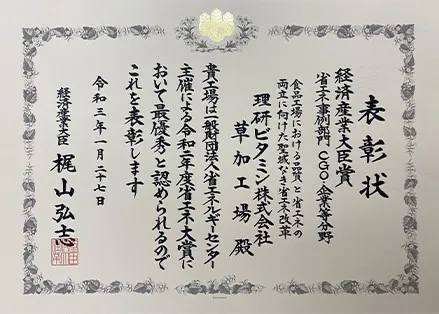 表彰状
経済産業大臣賞
省エネ事例部門 CGO・企業等分野
食品工場における品質と省エネの
両立に向けた聖域なき省エネ改革
理研ビタミン株式会社
草加工場殿
貴工場は一般財団法人省エネルギーセンター
主催による令和二年度省エネ大賞に
おいて最優秀と認められるので
これを表彰します
令和三年一月二十七日
経済産業大臣 梶山弘志